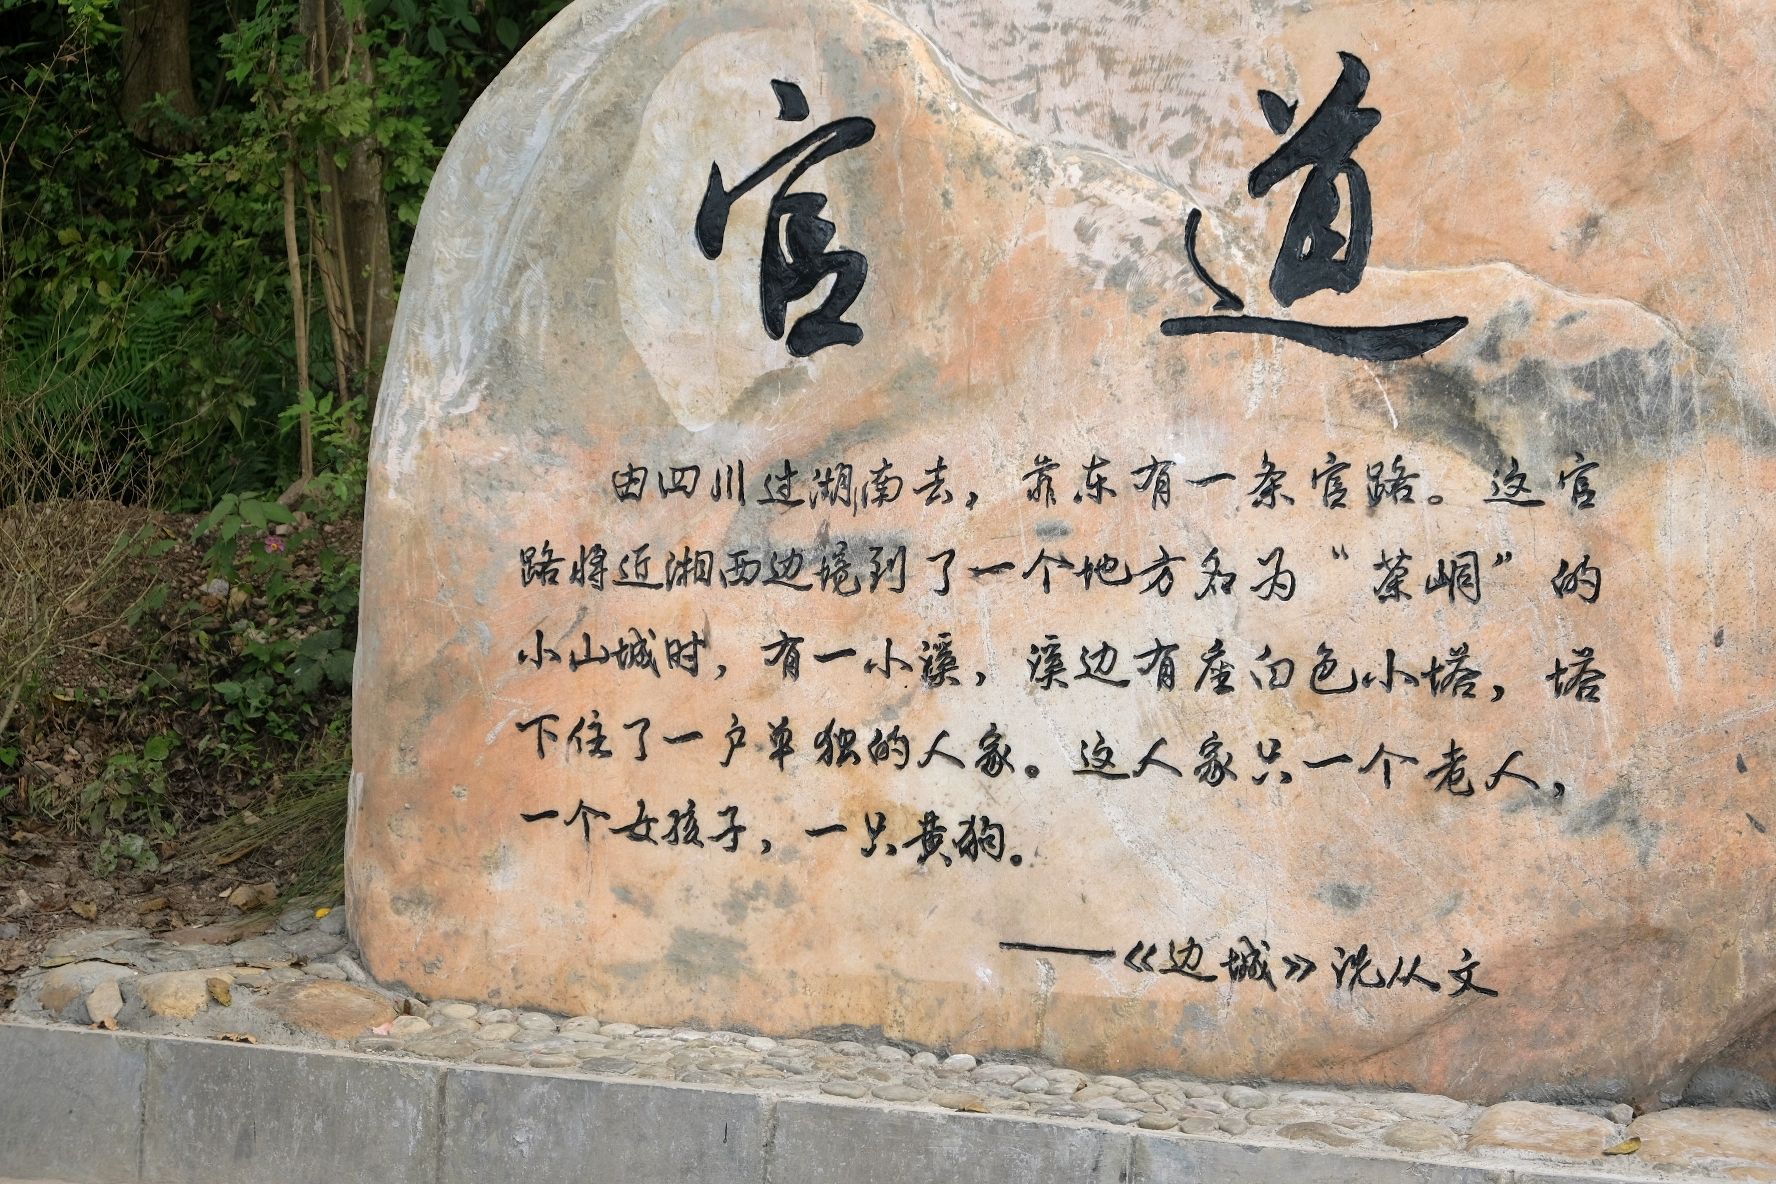 官道
由四川过湖南去，靠东有一条官路。这官
路将近湘西边境到了一个地方名为“茶峒”的
小山城时，有一小溪，溪边有座白色小塔，塔
下住了一户单独的人家。这人家只一个老人，
一个女孩子，一只黄狗。
——《边城》沈从文